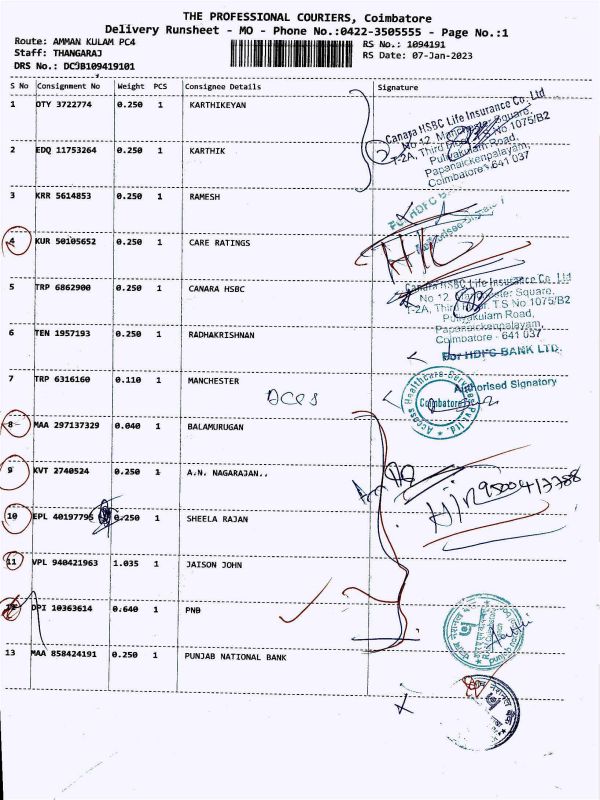 THE PROFESSIONAL COURIERS, Coimbatore
Delivery Runsheet - MO - Phone No.:0422-3505555 - Page No.:1
Route: AMMAN KULAM PC4
RS No.: 1094191
Staff: THANGARAJ
RS Date: 07-Jan-2023
DRS No.: DCJB109419101
S No Consignment No Weight PCS Consignee Details Signature
1 OTY 3722774 0.250 1 KARTHIKEYAN
Canara HSBC Life Insurance Co. Ltd
No 12, Manchester Square,
T-2A, Third Floor, T.S No 1075/B2
Puliyakulam Road,
Papanaickenpalayam,
Coimbatore - 641 037
2 EDQ 11753264 0.250 1 KARTHIK
3 KRR 5614853 0.250 1 RAMESH
For HDFC BANK
Authorised Signatory
4 KUR 50105652 0.250 1 CARE RATINGS
5 TRP 6862900 0.250 1 CANARA HSBC
Canara HSBC Life Insurance Co. Ltd
No 12, Manchester Square,
T-2A, Third Floor, T.S No 1075/B2
Puliyakulam Road,
Papanaickenpalayam,
Coimbatore - 641 037
6 TEN 1957193 0.250 1 RADHAKRISHNAN
For HDFC BANK LTD.
7 TRP 6316160 0.110 1 MANCHESTER
Authorised Signatory
Access Healthcare Services Pvt Ltd
Coimbatore
8 MAA 297137329 0.040 1 BALAMURUGAN
9 KVT 2740524 0.250 1 A.N. NAGARAJAN..
10 EPL 40197795 0.250 1 SHEELA RAJAN
11 VPL 940421963 1.035 1 JAISON JOHN
12 DPI 10363614 0.640 1 PNB
13 MAA 858424191 0.250 1 PUNJAB NATIONAL BANK